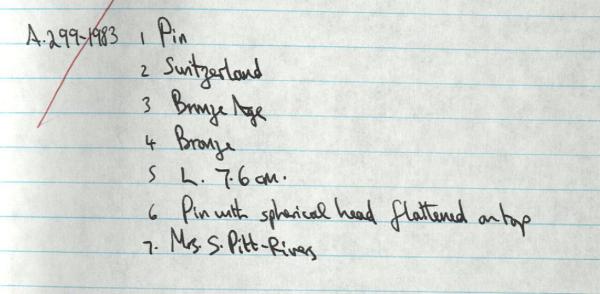 A.299-1983 1 Pin
2 Switzerland
3 Bronze Age
4 Bronze
5 L. 7.6 cm.
6 Pin with spherical head flattened on top
7. Mrs. S. Pitt-Rivers